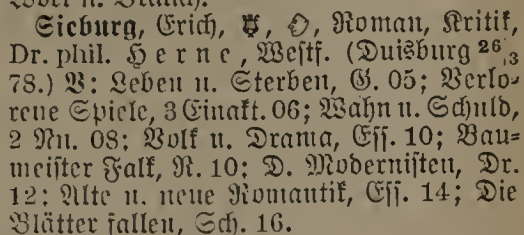 Sieburg, Erich, Roman, Kritik,
Dr. phil. Herne, Westf. (Duisburg 26,3
78.) V: Leben u. Sterben, G. 05; Verlo-
rene Spiele, 3 Einakt. 06; Wahn u. Schuld,
2 Nn. 08; Volk u. Drama, Ess. 10; Bau-
meister Falk, R. 10; D. Modernisten, Dr.
12; Alte u. neue Romantik, Ess. 14; Die
Blätter fallen, Sch. 16.